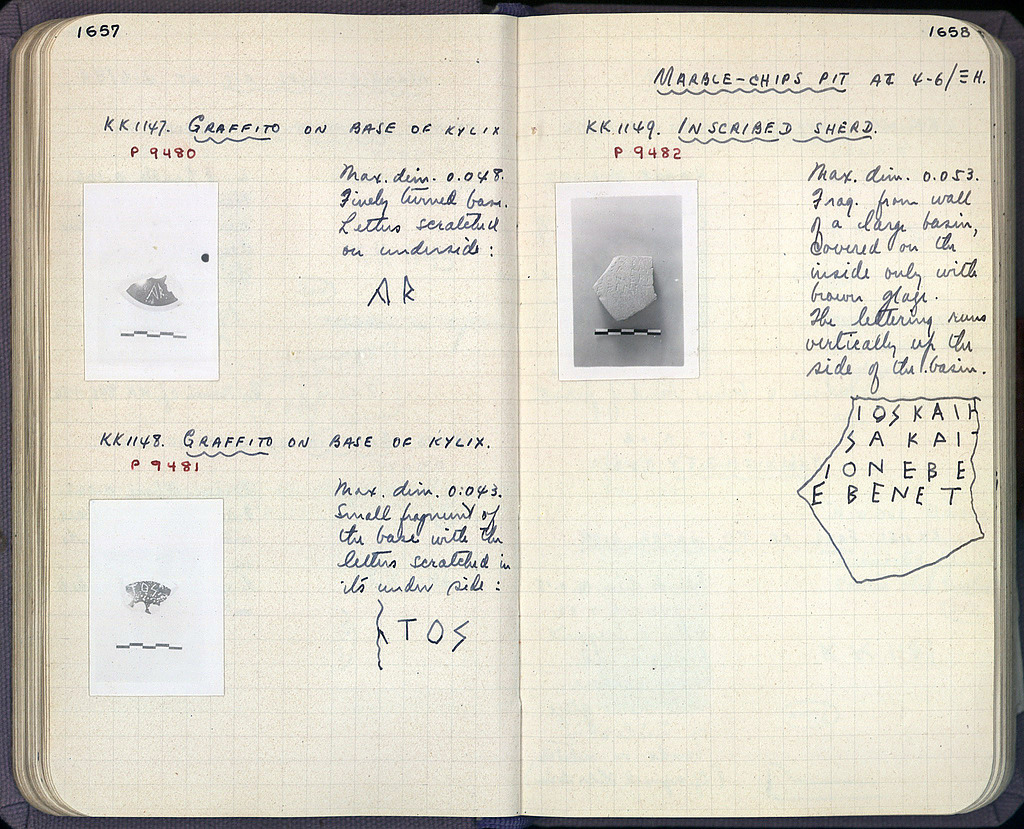 1657
KK1147. GRAFFITO ON BASE OF KYLIX
P 9480
Max. dim. 0.048.
Finely turned base.
Letters scratched
on underside:
AR
KK1148. GRAFFITO ON BASE OF KYLIX.
P 9481
Max. dim. 0.043.
Small fragment of
the base with the
letters scratched in
its under side:
TOS
1658
MARBLE-CHIPS PIT AT 4-6/ΞH.
KK1149. INSCRIBED SHERD.
P 9482
Max. dim. 0.053.
Frag. from wall
of a large basin,
covered on the
inside only with
brown glaze.
The lettering runs
vertically up the
side of the basin.
IOSKAIH
SAKAI
IONEBE
EBENET